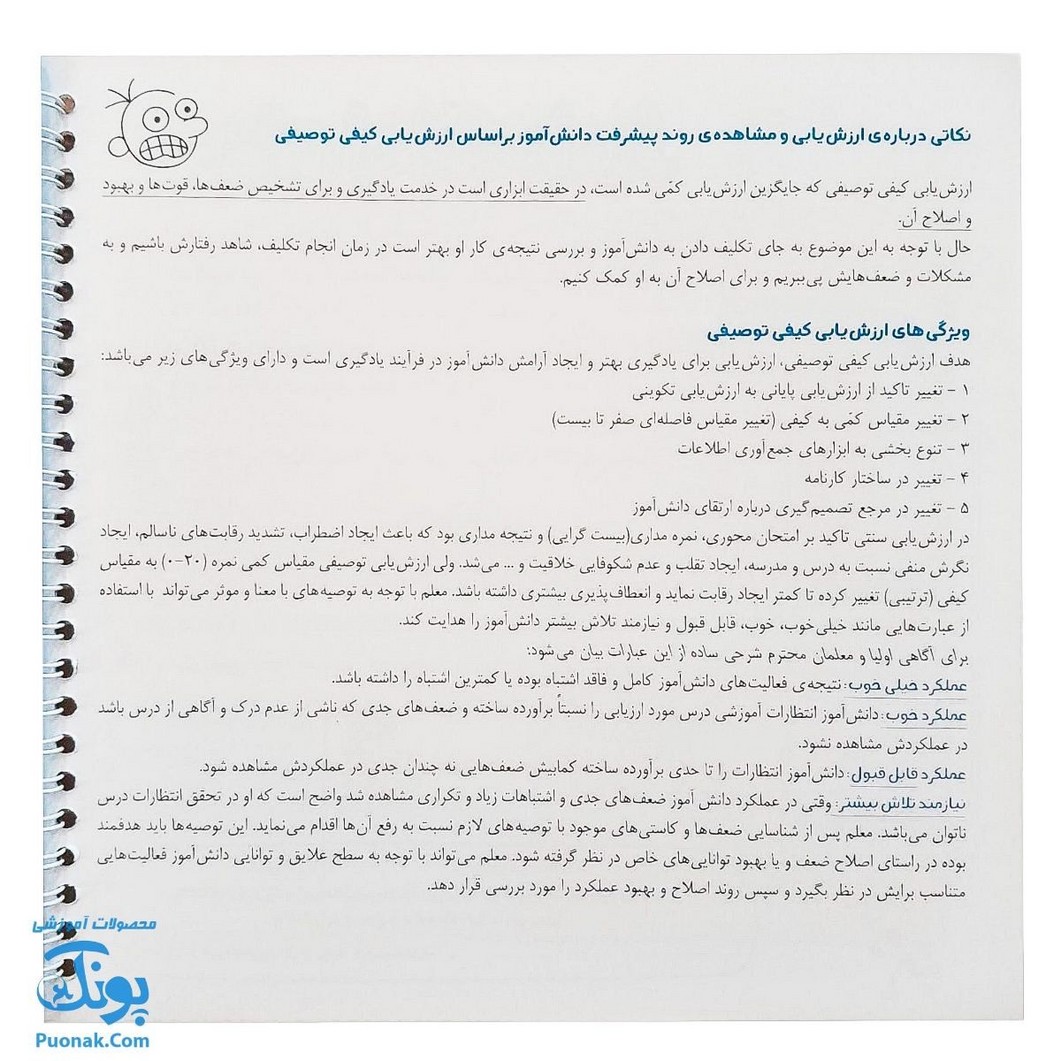 نکاتی درباره‌ی ارزش‌یابی و مشاهده‌ی روند پیشرفت دانش‌آموز براساس ارزش‌یابی کیفی توصیفی
ارزش‌یابی کیفی توصیفی که جایگزین ارزش‌یابی کمّی شده است، در حقیقت ابزاری است در خدمت یادگیری و برای تشخیص ضعف‌ها، قوت‌ها و بهبود
و اصلاح آن.
حال با توجه به این موضوع به جای تکلیف دادن به دانش‌آموز و بررسی نتیجه‌ی کار او بهتر است در زمان انجام تکلیف، شاهد رفتارش باشیم و به
مشکلات و ضعف‌هایش پی‌ببریم و برای اصلاح آن به او کمک کنیم.
ویژگی‌های ارزش‌یابی کیفی توصیفی
هدف ارزش‌یابی کیفی توصیفی، ارزش‌یابی برای یادگیری بهتر و ایجاد آرامش دانش‌آموز در فرآیند یادگیری است و دارای ویژگی‌های زیر می‌باشد:
۱ - تغییر تاکید از ارزش‌یابی پایانی به ارزش‌یابی تکوینی
۲ - تغییر مقیاس کمّی به کیفی (تغییر مقیاس فاصله‌ای صفر تا بیست)
۳ - تنوع بخشی به ابزارهای جمع‌آوری اطلاعات
۴ - تغییر در ساختار کارنامه
۵ - تغییر در مرجع تصمیم‌گیری درباره ارتقای دانش‌آموز
در ارزش‌یابی سنتی تاکید بر امتحان محوری، نمره مداری(بیست گرایی) و نتیجه مداری بود که باعث ایجاد اضطراب، تشدید رقابت‌های ناسالم، ایجاد
نگرش منفی نسبت به درس و مدرسه، ایجاد تقلب و عدم شکوفایی خلاقیت و ... می‌شد. ولی ارزش‌یابی توصیفی مقیاس کمی نمره (۲۰-۰) به مقیاس
کیفی (ترتیبی) تغییر کرده تا کمتر ایجاد رقابت نماید و انعطاف‌پذیری بیشتری داشته باشد. معلم با توجه به توصیه‌های با معنا و موثر می‌تواند با استفاده
از عبارت‌هایی مانند خیلی‌خوب، خوب، قابل قبول و نیازمند تلاش بیشتر دانش‌آموز را هدایت کند.
برای آگاهی اولیا و معلمان محترم شرحی ساده از این عبارات بیان می‌شود:
عملکرد خیلی خوب: نتیجه‌ی فعالیت‌های دانش‌آموز کامل و فاقد اشتباه بوده یا کمترین اشتباه را داشته باشد.
عملکرد خوب: دانش‌آموز انتظارات آموزشی درس مورد ارزیابی را نسبتاً برآورده ساخته و ضعف‌های جدی که ناشی از عدم درک و آگاهی از درس باشد
در عملکردش مشاهده نشود.
عملکرد قابل قبول: دانش‌آموز انتظارات را تا حدی برآورده ساخته کمابیش ضعف‌هایی نه چندان جدی در عملکردش مشاهده شود.
نیازمند تلاش بیشتر: وقتی در عملکرد دانش آموز ضعف‌های جدی و اشتباهات زیاد و تکراری مشاهده شد واضح است که او در تحقق انتظارات درس
ناتوان می‌باشد. معلم پس از شناسایی ضعف‌ها و کاستی‌های موجود با توصیه‌های لازم نسبت به رفع آن‌ها اقدام می‌نماید. این توصیه‌ها باید هدفمند
بوده در راستای اصلاح ضعف و یا بهبود توانایی‌های خاص در نظر گرفته شود. معلم می‌تواند با توجه به سطح علایق و توانایی دانش‌آموز فعالیت‌هایی
متناسب برایش در نظر بگیرد و سپس روند اصلاح و بهبود عملکرد را مورد بررسی قرار دهد.
محصولات آموزشی
پونک
Puonak.Com